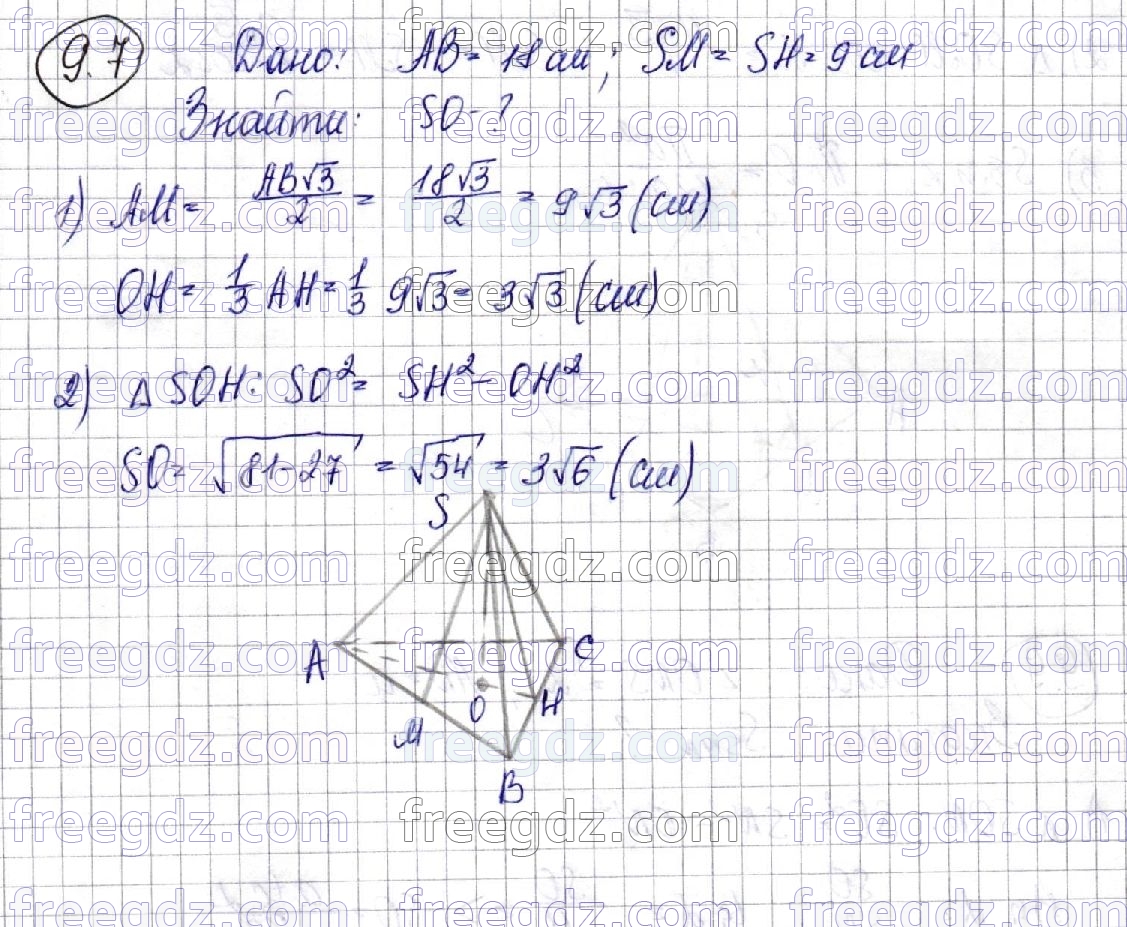 9.7 Дано: AB = 18 см; SM = SH = 9 см
Знайти: SO - ?
1) AM = AB√3/2 = 18√3/2 = 9√3 (см)
OH = 1/3 AH = 1/3 9√3 = 3√3 (см)
2) △ SOH: SO² = SH² - OH²
SO = √81-27 = √54 = 3√6 (см)
S
A
C
O
H
M
B
freegdz.com